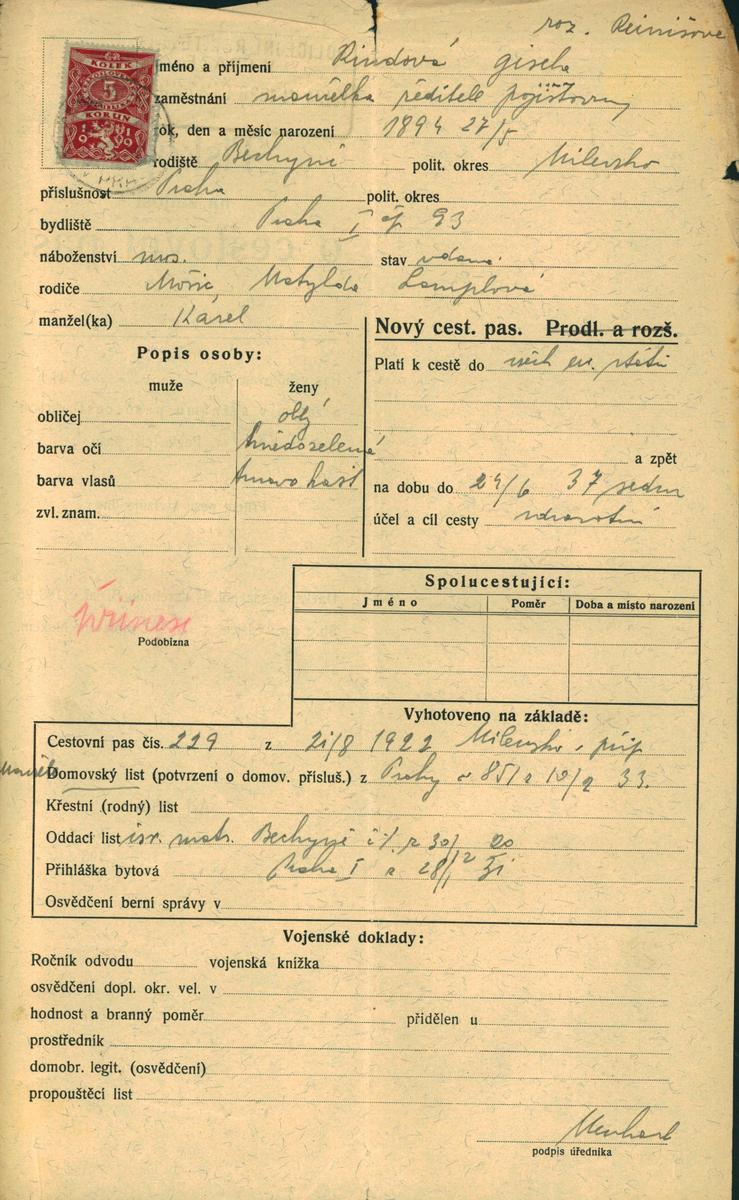 roz. Reinišova
KOLEK
5
KORUN
jméno a příjmení Rindová Gisela
zaměstnání manželka ředitele pojišťovny
rok, den a měsíc narození 1894 27/5
rodiště Bechyně polit. okres Milevsko
příslušnost Praha polit. okres
bydliště Praha I čp 93
náboženství mos. stav vdaná
rodiče Mořic, Matylda Lamplová
manžel(ka) Karel
Nový cest. pas. Prodl. a rozš.
Popis osoby:
Platí k cestě do všech ev. států
muže ženy
obličej oblý
barva očí hnědozelená
a zpět
barva vlasů tmavo kašt
na dobu do 24/6 37
zvl. znam.
účel a cíl cesty zdravotní
Spolucestující:
Jméno Poměr Doba a místo narození
Podobizna
Vyhotoveno na základě:
Cestovní pas čís. 229 z 21/8 1922 Milevsko
Domovský list (potvrzení o domov. přísluš.) z Prahy 33.
Křestní (rodný) list
Oddací list isr. matr. Bechyně
Přihláška bytová Praha I
Osvědčení berní správy v
Vojenské doklady:
Ročník odvodu vojenská knížka
osvědčení dopl. okr. vel. v
hodnost a branný poměr přidělen u
prostředník
domobr. legit. (osvědčení)
propouštěcí list
podpis úředníka